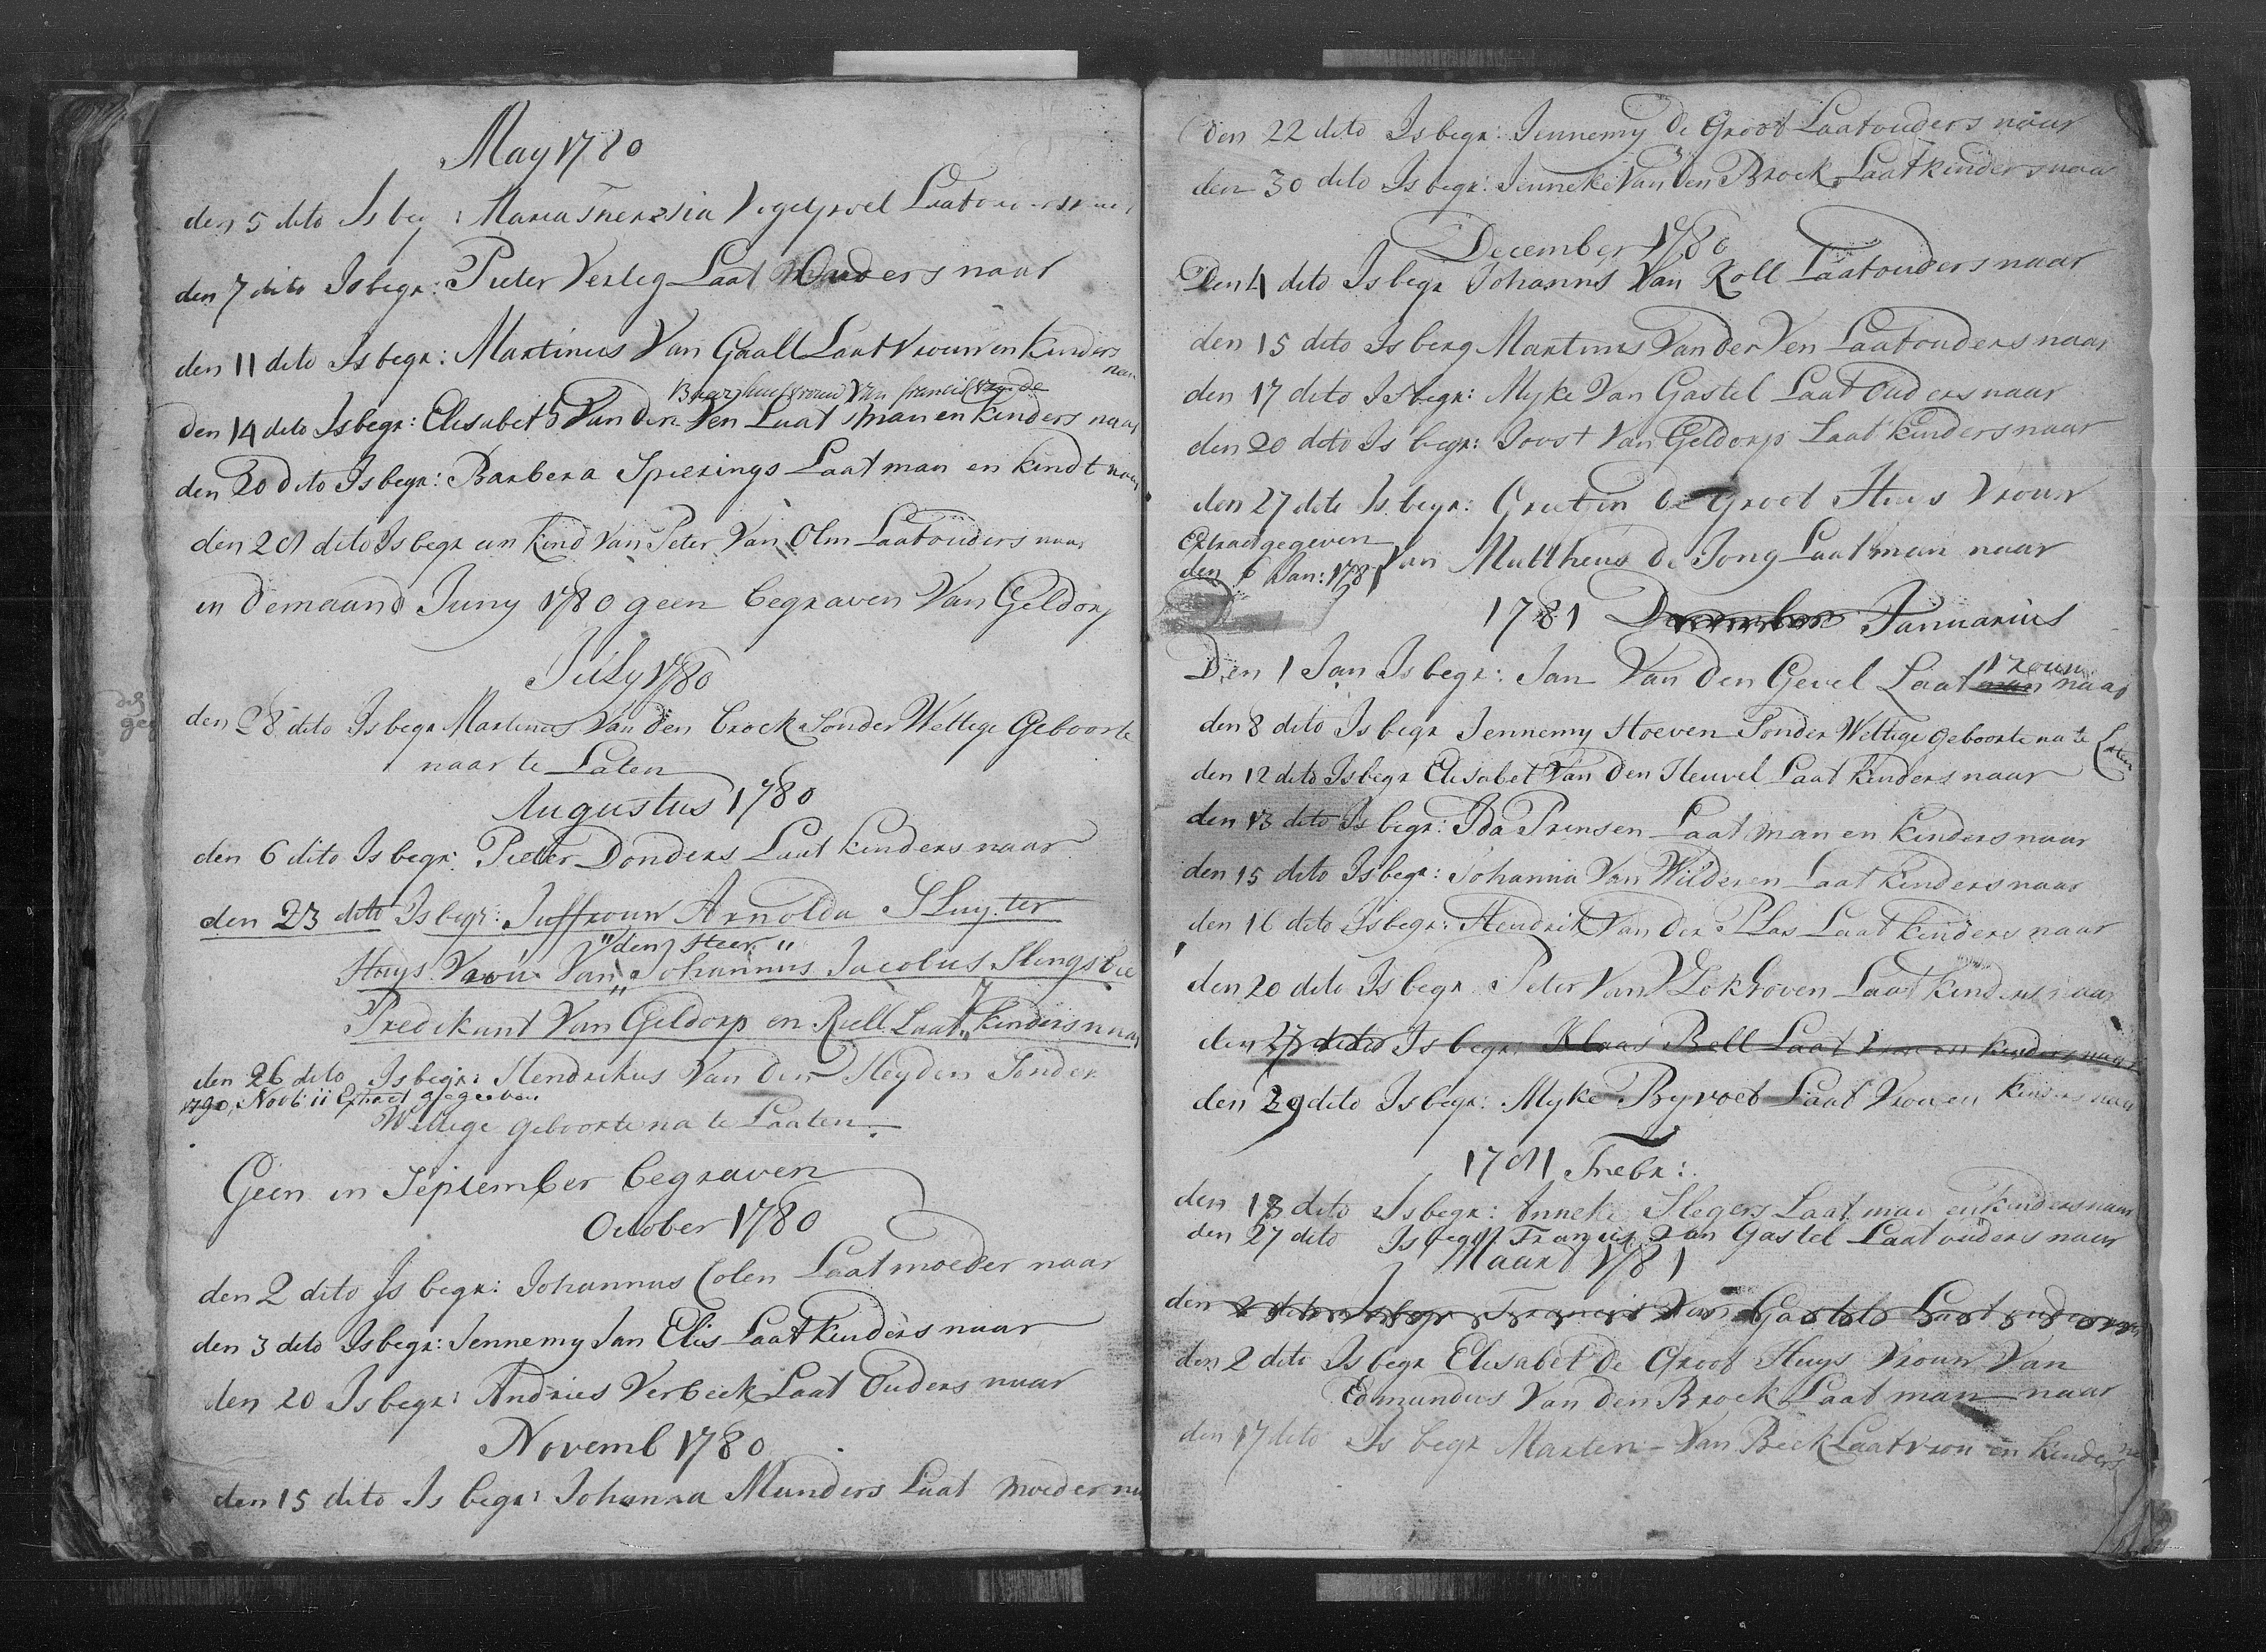 May 1780
den 5 dito Is beg : Maria Theresia Vogelpoel Laat ouders naar
den 7 dito Is begr: Pieter Verleg Laat Ouders naar
den 11 dito Is begr: Martinus Van Gaall Laat Vrouw en Kinders naar
huysvrouw Van francis
den 14 dito Is begr: Elisabeth Van der Ven Laat man en kinders naar
den 20 dito Is begr: Barbera Spierings Laat man en kindt naar
den 20 dito Is begr een kind Van Peter Van Olm Laat ouders naar
in de maand Juny 1780 geen begraven Van Geldorp
July 1780
den 28 dito Is begr Martinus Van den broek Sonder Wettege Geboorte
naar te Laten
Augustus 1780
den 6 dito Is begr: Pieter Donders Laat kinders naar
den 23 dito Is begr: Juffrouw Arnolda Sluyter
" den Heer "
Huys Vrouw Van Johannus Jacobus Slingsbie
Predikant Van Geldorp en Riell Laat kinders naar
den 26 dito Is begr: Hendrikus Van der Heyden Sonder
1790, Novb: 11 Extract gegeeven
Wettege geboorte na te Laaten
Geen in September begraven
October 1780
den 2 dito Is begr: Johannus Colen Laat moeder naar
den 3 dito Is begr: Jennemy Jan Elis Laat kinders naar
den 20 Is begr: Andries Verbeek Laat Ouders naar
Novemb 1780
den 15 dito Is begr: Johanna Munders Laat moeder naar
den 22 dito Is begr: Jennemy de Groot Laat ouders naar
den 30 dito Is begr: Jenneke Van den Broek Laat kinders naar
December 1780
Den 4 dito Is begr Johanns Van Roll Laat ouders naar
den 15 dito Is berg Martinus Van der Ven Laat ouders naar
den 17 dito Is begr: Myke Van Gastel Laat Ouders naar
den 20 dito Is begr: Joost Van Geldorp Laat kinders naar
den 27 dito Is begr: Grietjn de Groot Huys Vrouw
Extract gegeven
den 6 Jan: 1781 Van Mattheus de Jong Laat man naar
1781 December Januarius
Den 1 Jan Is begr: Jan Van den Gevel Laat man vrouw naar
den 8 dito Is begr Jennemy Hoeven Sonder Wettige geboorte na te Laten
den 12 dito Is begr Elisabet Van den Heuvel Laat kinders naar
den 13 dito Is begr: Ida Prinsen Laat man en kinders naar
den 15 dito Is begr: Johanna Van Wilderen Laat kinders naar
den 16 dito Is begr: Hendrik Van der Plas Laat kinders naar
den 20 dito Is begr Peter Van Lokhoven Laat kinders naar
den 27 dito Is begr: Klaas Bell Laat Vrou en kinders naar
den 29 dito Is begr: Myke Byvoet Laat Vrou en kinders naar
1781 Frebr:
den 13 dito Is begr: Anneke Slegers Laat man en kinders naar
den 27 dito Is begr: Francis Van Gastel Laat ouders naar
Maart 1781
den 2 dito Is begr Francis Van Gastel Laat ouders naar
den 2 dito Is begr Elisabet de Groot Huys Vrouw Van
Edmundus Van den Broek Laat man naar
den 17 dito Is begr Marten Van Beek Laat vrou en kinders na